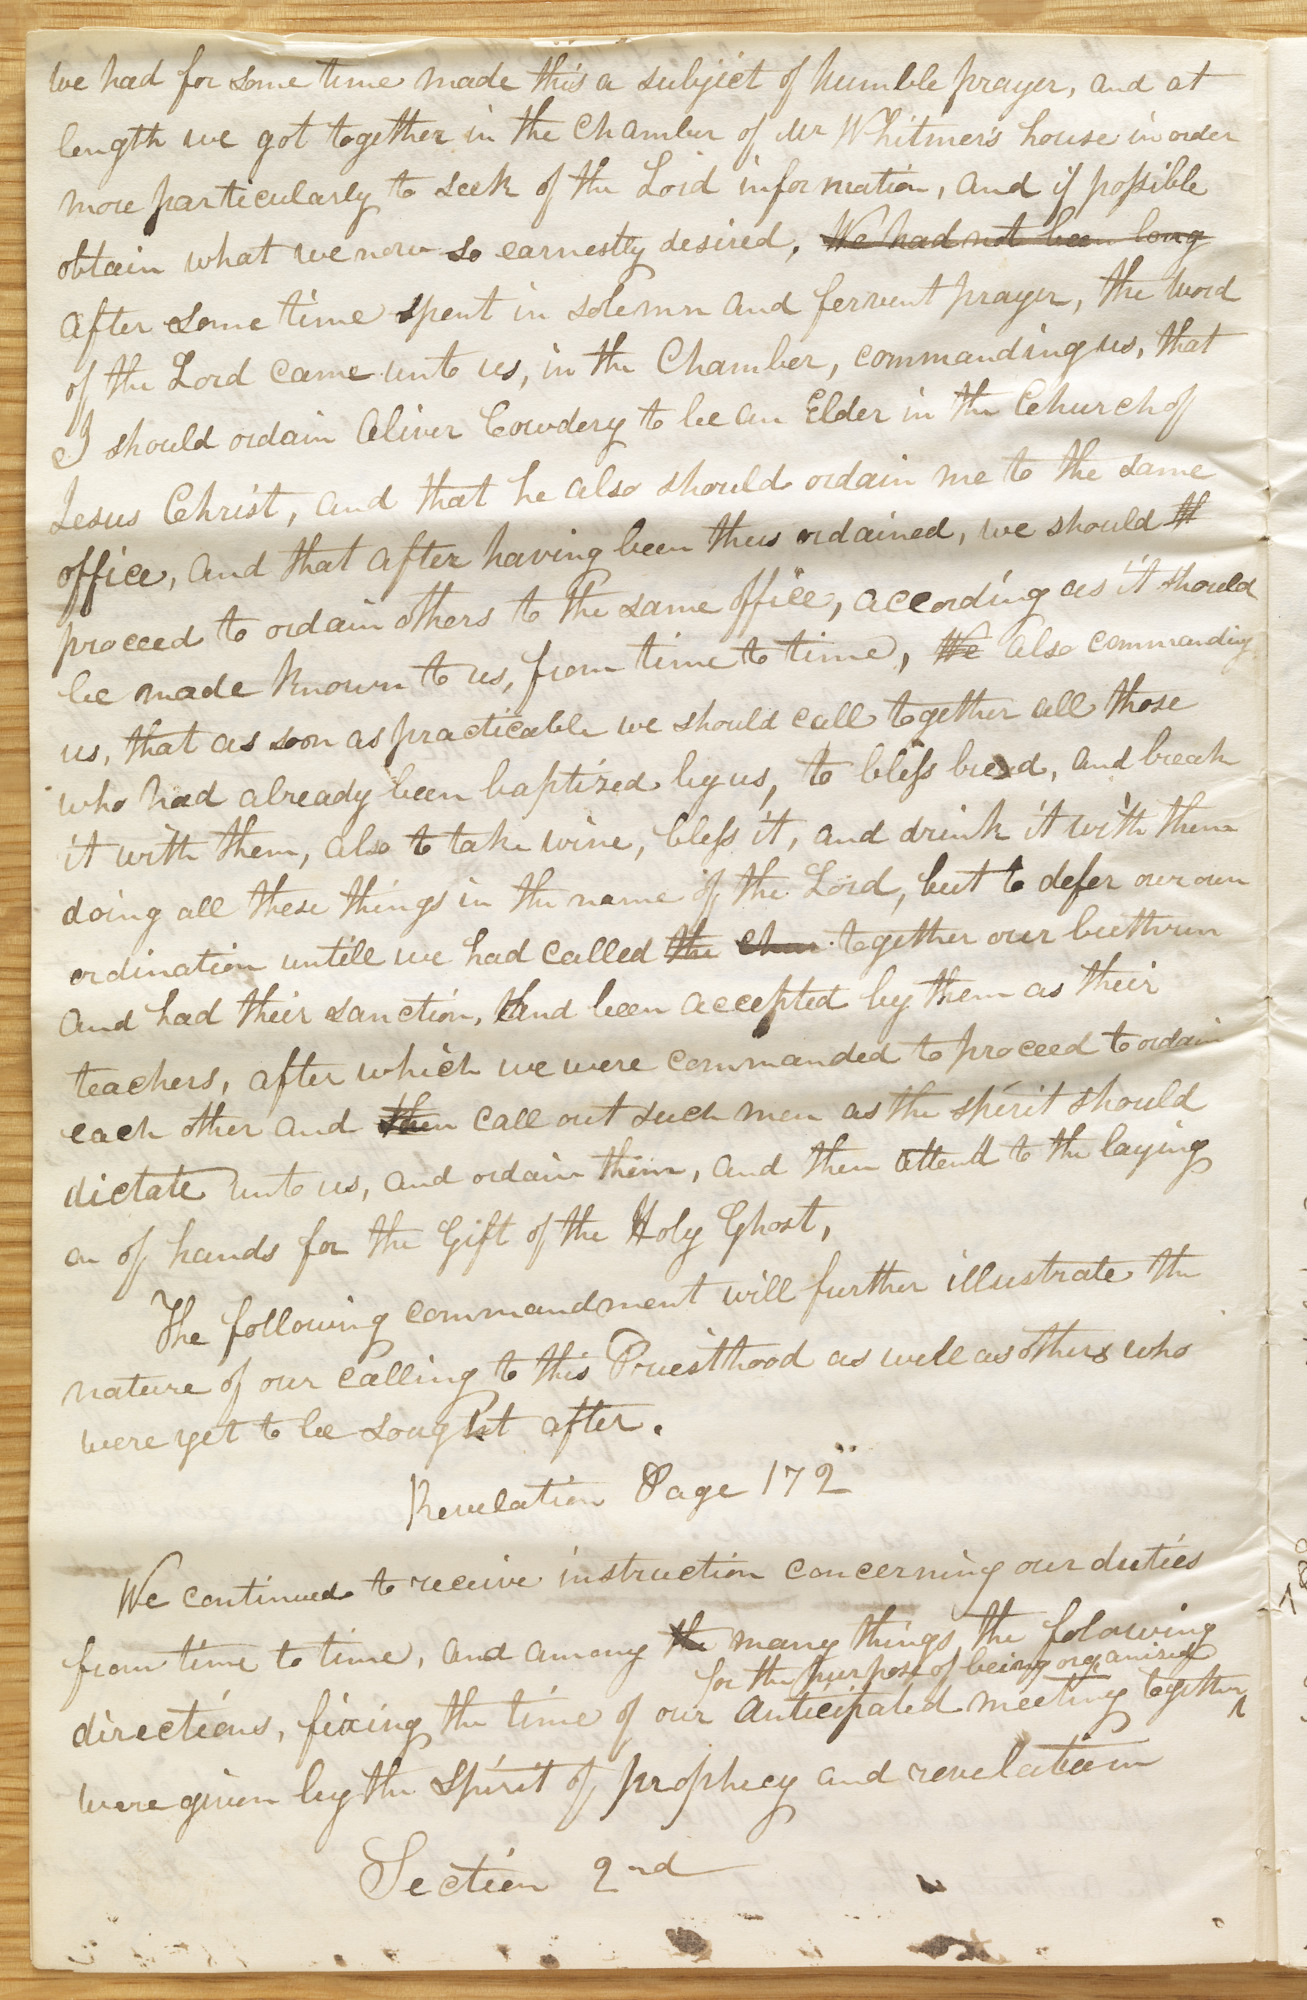 we had for some time made this a subject of humble prayer, and at
length we got together in the Chamber of Mr Whitmer's house in order
more particularly to seek of the Lord information, and if possible
obtain what we now so earnestly desired. We had not been long
after some time spent in solemn and fervent prayer, the word
of the Lord came unto us, in the Chamber, commanding us, that
I should ordain Oliver Cowdery to be an Elder in the Church of
Jesus Christ, and that he also should ordain me to the same
office, and that after having been thus ordained, we should th
proceed to ordain others to the same office, according as it should
be made known to us, from time to time, We also commanding
us, that as soon as practicable we should call together all those
who had already been baptized by us, to bless bread, and break
it with them, also to take wine, bless it, and drink it with them
doing all these things in the name of the Lord, but to defer our own
ordination untill we had called the Chur together our brethren
and had their sanction, and been accepted by them as their
teachers, after which we were commanded to proceed to ordain
each other and then call out such men as the spirit should
dictate unto us, and ordain them, and then attend to the laying
on of hands for the Gift of the Holy Ghost,
The following commandment will further illustrate the
nature of our calling to this Priesthood as well as others who
were yet to be sought after.
Revelation Page 172
We continued to receive instruction concerning our duties
from time to time, and among the many things, the folowing
for the purpose of being organized
directions, fixing the time of our anticipated meeting together
were given by the Spirit of prophecy and revelation
Section 2nd